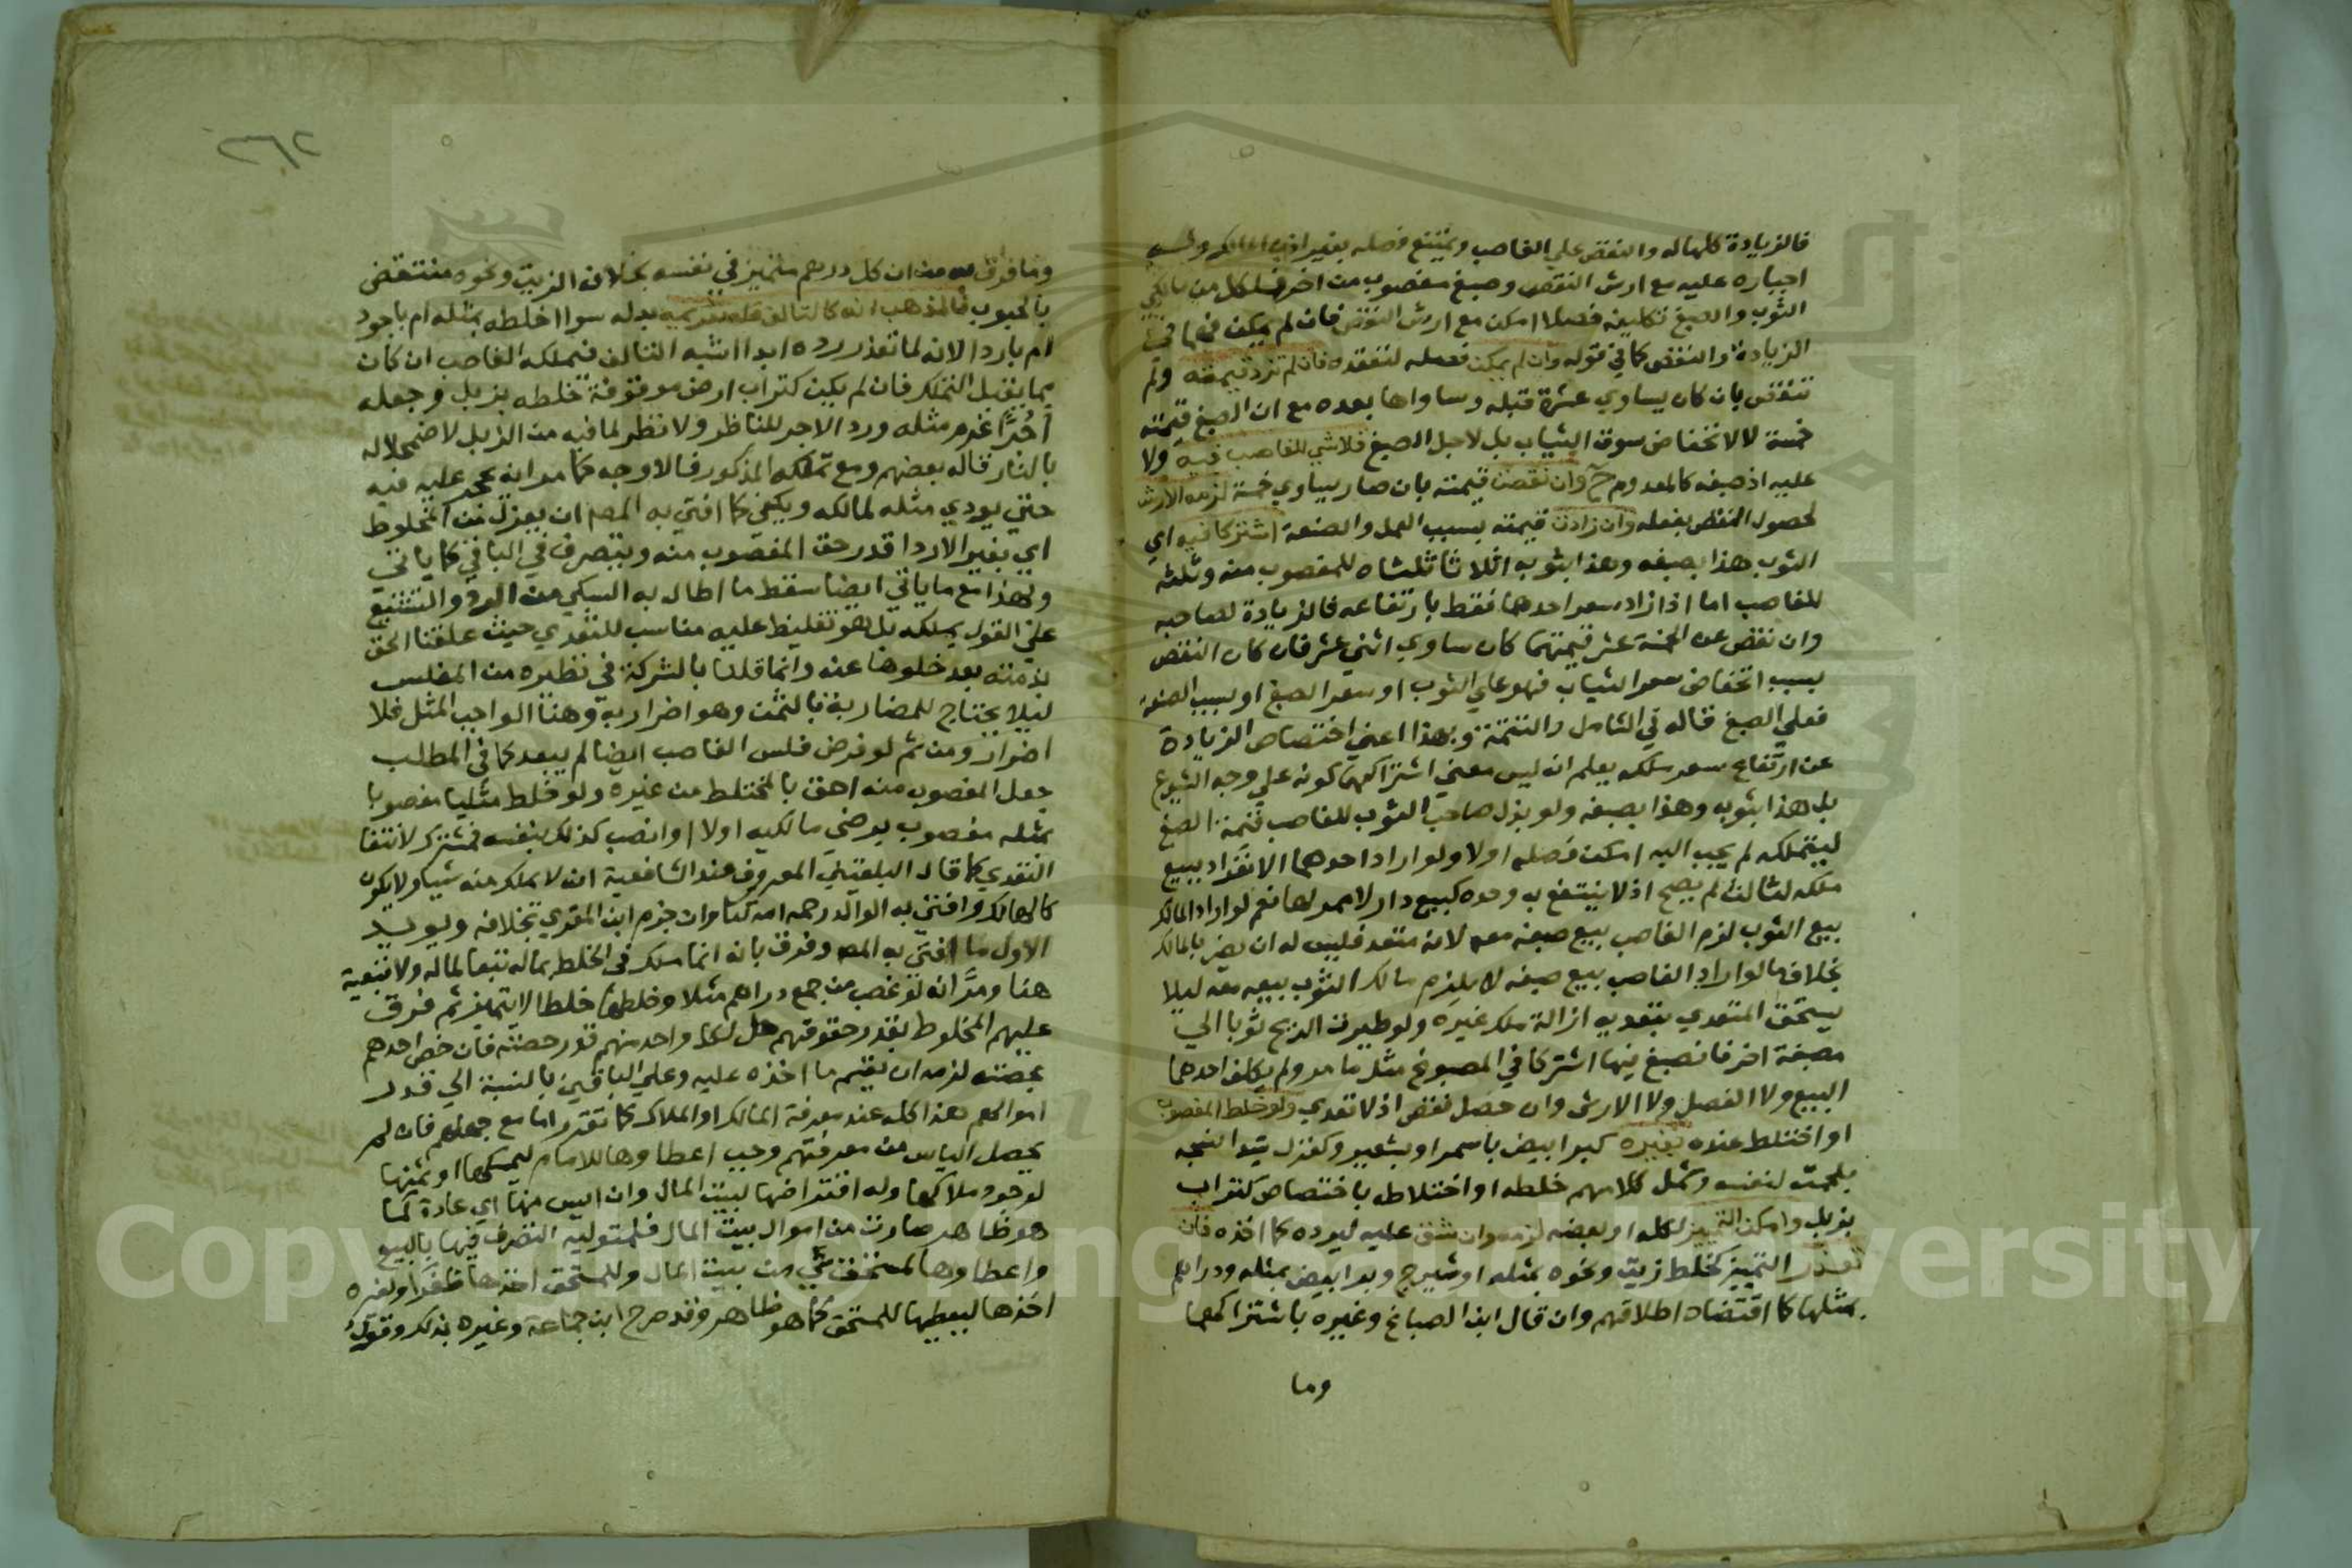 فالزيادة كلها له والنقص علي الغاصب ويمتنع فصله بغير اذن المالك وله
اجباره عليه مع ارش النقص وصبغ مغصوب من اخر فلكل من مالكي
الثوب والصبغ تكليفه فصلا امكن مع ارش النقص فان لم يمكن فهما في
الزيادة والنقص كما في قوله وان لم يمكن فصله لتعقده فان لم تزد قيمته ولم
تنقص بان كان يساوي عشرة قبله وساواها بعده مع ان الصبغ قيمته
خمسة لا لانخفاض سوق الثياب بل لاجل الصبغ فلا شي للغاصب فيه ولا
عليه اذ صبغه كالمعدوم ح وان نقصت قيمته بان صار يساوي خمسة لزمه الارش
لحصول النقص بفعله وان زادت قيمته بسبب العمل والصنعة اشتركا فيه اي
الثوب هذا بصبغه وهذا بثوبه اثلاثا ثلثاه للمغصوب منه وثلثه
للغاصب اما اذا زاد سعر احدهما فقط بارتفاعه فالزيادة لصاحبه
وان نقص عن الخمسة عشر قيمتهما كان ساوي اثني عشر فان كان النقص
بسبب انخفاض سعر الثياب فهو علي الثوب او سعر الصبغ او بسبب الصنعة
فعلي الصبغ قاله في الشامل والتتمة وبهذا اعني اختصاص الزيادة
عن ارتفاع سعر ملكه يعلم انه ليس معني اشتراكهما كونه علي وجه الشيوع
بل هذا بثوبه وهذا بصبغه ولو بذل صاحب الثوب للغاصب قيمة الصبغ
ليتملكه لم يجب اليه امكن فصله اولا ولو اراد احدهما الانفراد ببيع
ملكه لثالث لم يصح اذ لا ينتفع به وحده كبيع دار لا ممر لها نعم لو اراد المالك
بيع الثوب لزم الغاصب بيع صبغه معه لانه متعد فليس له ان يضر بالمالك
بخلاف ما لو اراد الغاصب بيع صبغه لا يلزم مالك الثوب بيعه معه ليلا
يستحق المتعدي بتعديه ازالة ملك غيره ولو طيرت الريح ثوبا الي
مصبغة اخر فانصبغ فيها اشتركا في المصبوغ مثل ما مر ولم يكلف احدهما
البيع ولا الفصل ولا الارش وان حصل نقص اذ لا تعدي ولو خلط المغصوب
او اختلط عنده بغيره كبر ابيض باسمر او بشعير وكغزل سدا نسجه
بلحمة لنفسه وشمل كلامهم خلطه او اختلاطه باختصاص كتراب
بزبل وامكن التمييز لكله او بعضه لزمه وان شق عليه ليرده كما اخذه فان
تعذر التمييز كخلط زيت ونحوه بمثله او شيرج وبر ابيض بمثله ودراهم
بمثلها كما اقتضاه اطلاقهم وان قال ابن الصباغ وغيره باشتراكهما
وما
٣٦٢
وما فرق به من ان كل درهم متميز في نفسه بخلاف الزيت ونحوه منتقض
بالحبوب فالمذهب انه كالتالف فله تغريمه بدله سوا اخلطه بمثله ام باجود
ام باردا لانه لما تعذر رده ابدا اشبه التالف فيملكه الغاصب ان كان
مما يقبل التملك فان لم يكن كتراب ارض موقوفة خلطه بزبل وجعله
اجرا غرم مثله ورد الاجر للناظر ولا نظر لما فيه من الزبل لاضمحلاله
بالنار قاله بعضهم ومع تملكه المذكور فالاوجه كما مر انه يحجر عليه فيه
حتي يودي مثله لمالكه ويكفي كما افتي به المصم ان يعزل من المخلوط
اي بغير الاردا قدر حق المغصوب منه ويتصرف في الباقي كما ياتي
وبهذا مع ما ياتي ايضا سقط ما اطال به السبكي من الرد والتشنيع
علي القول بملكه بل هو تغليظ عليه مناسب للتعدي حيث علقنا الحق
بذمته بعد خلوها عنه وانما قلنا بالشركة في نظيره من المفلس
ليلا يحتاج للمضاربة بالثمن وهو اضرار به وهنا الواجب المثل فلا
اضرار ومن ثم لو فرض فلس الغاصب ايضا لم يبعد كما في المطلب
جعل المغصوب منه احق بالمختلط من غيره ولو خلط مثليا مغصوبا
بمثله مغصوب برضي مالكيه اولا او انصب كذلك بنفسه فمشترك لانتفا
التعدي كما قال البلقيني المعروف عند الشافعية انه لا يملك منه شيا ولا يكون
كالهالك وافتي به الوالد رحمه الله تعا وان جزم ابن المقري بخلافه ويويد
الاول ما افتي به المصم وفرق بانه انما ملك في الخلط بماله تبعا لماله ولا تبعية
هنا ومر انه لو غصب من جمع دراهم مثلا وخلطها خلطا لا يتميز ثم فرق
عليهم المخلوط بقدر حقوقهم حل لكل واحد منهم قدر حصته فان خص احدهم
بحصته لزمه ان يقسم ما اخذه عليه وعلي الباقين بالنسبة الي قدر
اموالهم هذا كله عند معرفة المالك او الملاك كما تقرر اما مع جهلهم فان لم
يحصل الياس من معرفتهم وجب اعطاوها للامام ليمسكها او ثمنها
لوجود ملاكها وله اقتراضها لبيت المال وان ايس منها اي عادة كما
هو ظاهر صارت من اموال بيت المال فلمتوليه التصرف فيها بالبيع
واعطاوها لمستحق شي من بيت المال وللمستحق اخذها ظفرا ولغيره
اخذها ليعطيها للمستحق كما هو ظاهر وقد صرح ابن جماعة وغيره بذلك وقول